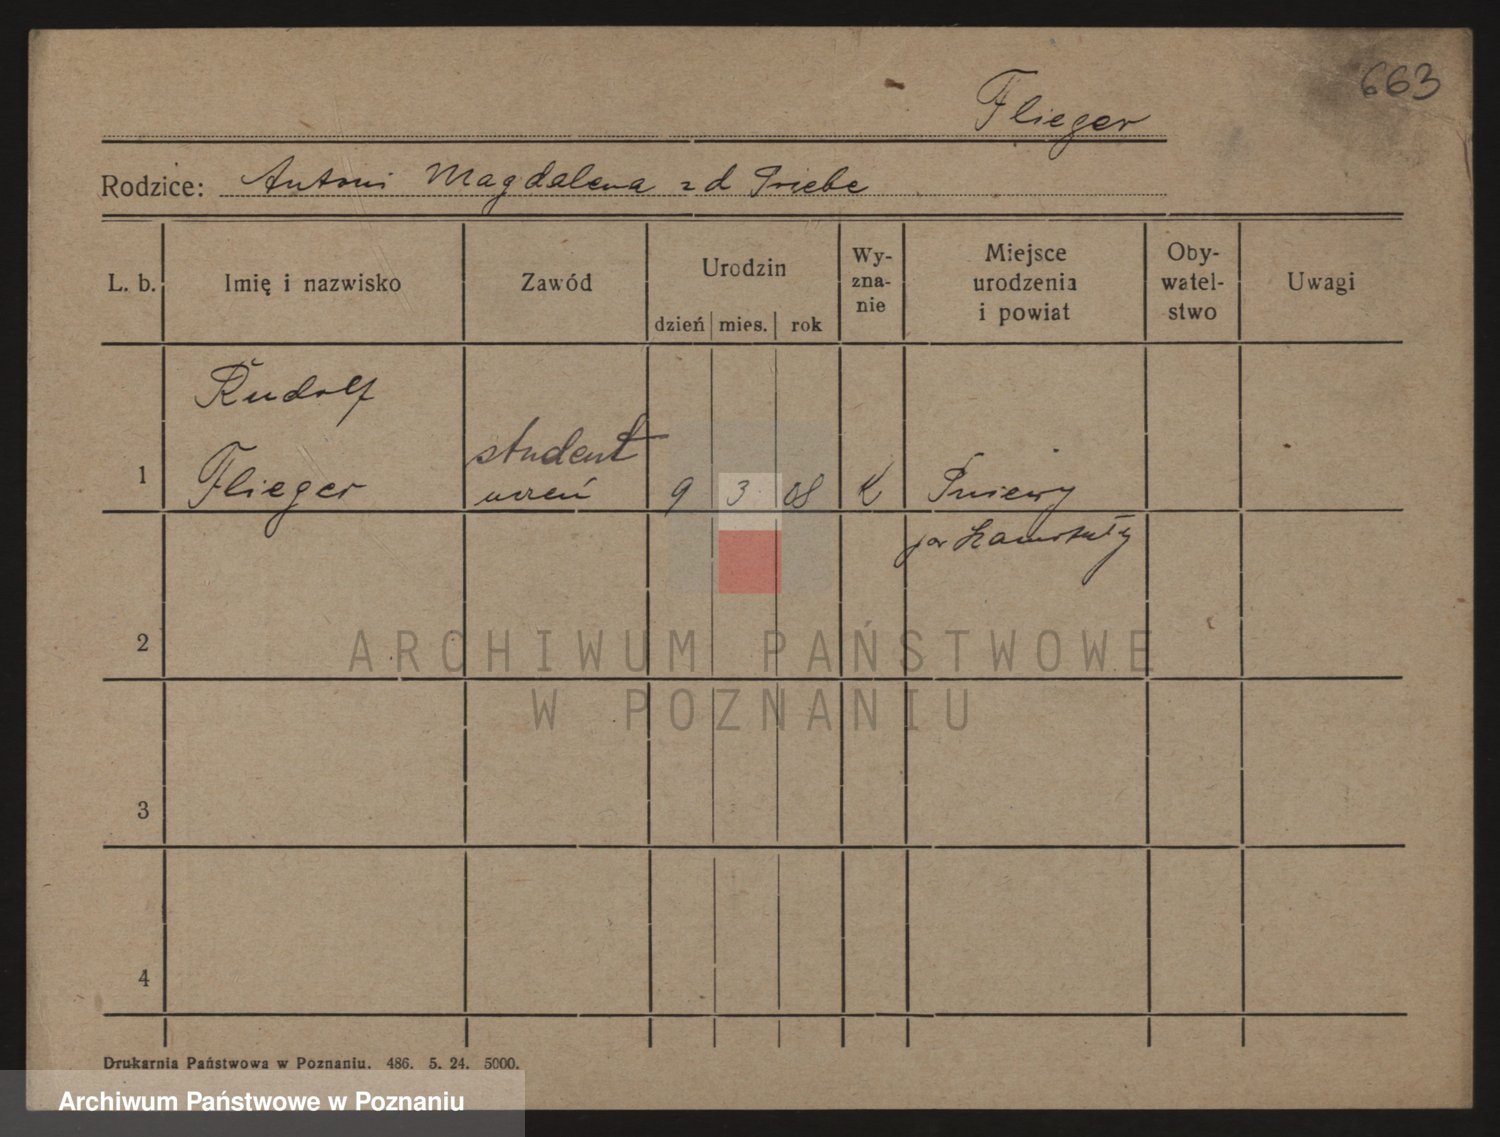 663
Flieger
Rodzice: Antoni Magdalena z d Priebe
L. b. Imię i nazwisko Zawód Urodzin dzień mies. rok Wy-zna-nie Miejsce urodzenia i powiat Oby-watel-stwo Uwagi
Rudolf
student
1 Flieger uczeń 9 3 08 K Pniewy
pow Szamotuły
2
3
4
Drukarnia Państwowa w Poznaniu. 486. 5. 24. 5000.
ARCHIWUM PAŃSTWOWE
W POZNANIU
Archiwum Państwowe w Poznaniu